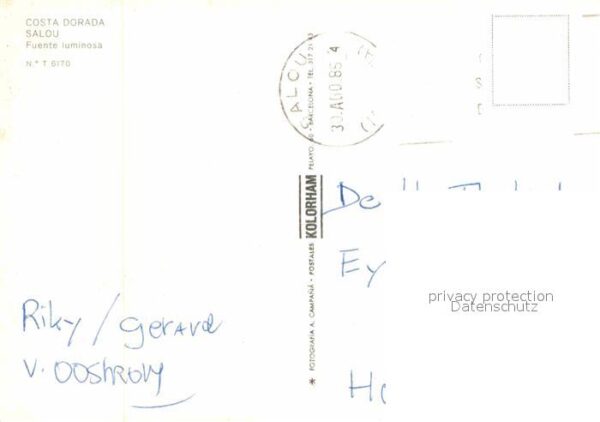 COSTA DORADA
SALOU
Fuente luminosa
N.° T 6170
SALOU
30.AGO 85.4
* FOTOGRAFIA A. CAMPAÑÁ - POSTALES KOLORHAM PELAYO, - BARCELONA - TEL. 317 21
De
Ey
privacy protection
Datenschutz
Riky / Gerard
v. Oostrom